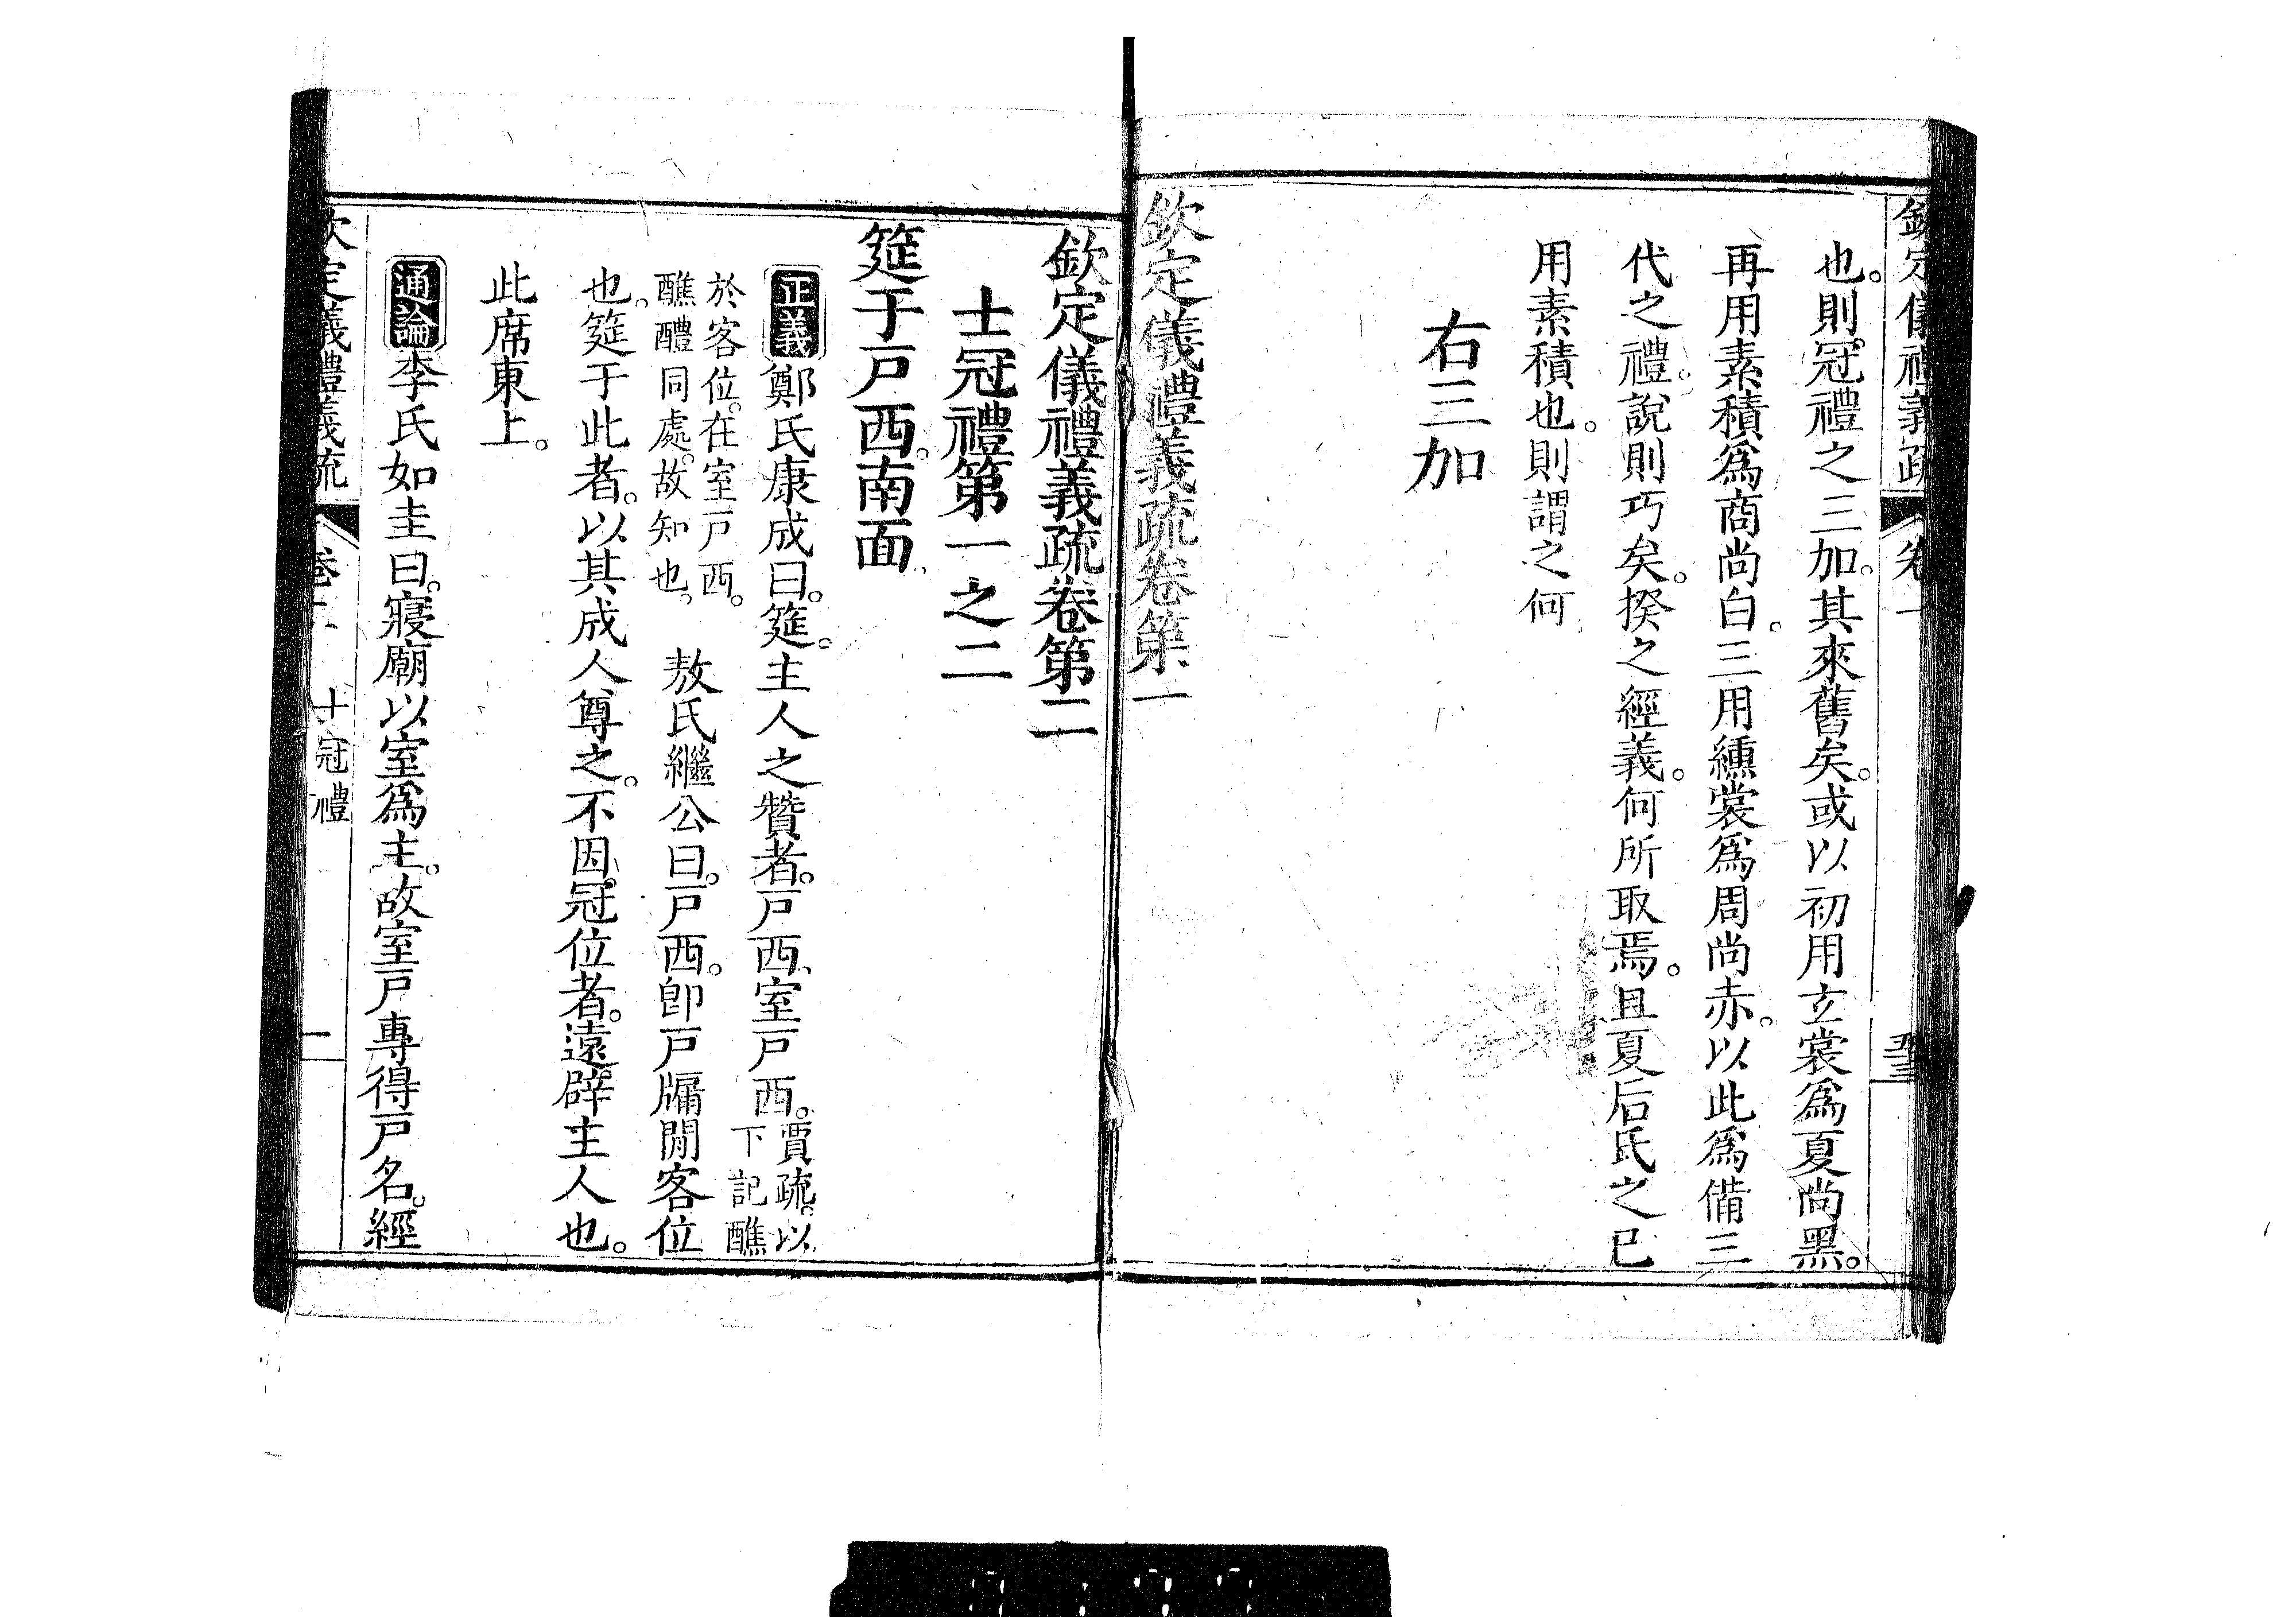 欽定儀禮義疏 卷一 至
也。則冠禮之三加。其來舊矣。或以初用玄裳爲夏尚黑。
再用素積爲商尚白。三用纁裳爲周尚赤。以此爲備三
代之禮。說則巧矣。揆之經義。何所取焉。且夏后氏之已
用素積也。則謂之何
右三加
欽定儀禮義疏卷第一
欽定儀禮義疏卷第二
士冠禮第一之二
筵于戸西。南面
正義鄭氏康成曰。筵。主人之贊者。戸西、室戸西。賈疏。以下記醮
於客位。在室戸西。醮醴同處。故知也。 敖氏繼公曰。戸西。卽戸牖閒客位
也。筵于此者。以其成人尊之。不因冠位者。遠辟主人也。
此席東上。
通論李氏如圭曰。寢廟以室爲主。故室戸專得戸名。經
欽定儀禮義疏 卷二 士冠禮 一